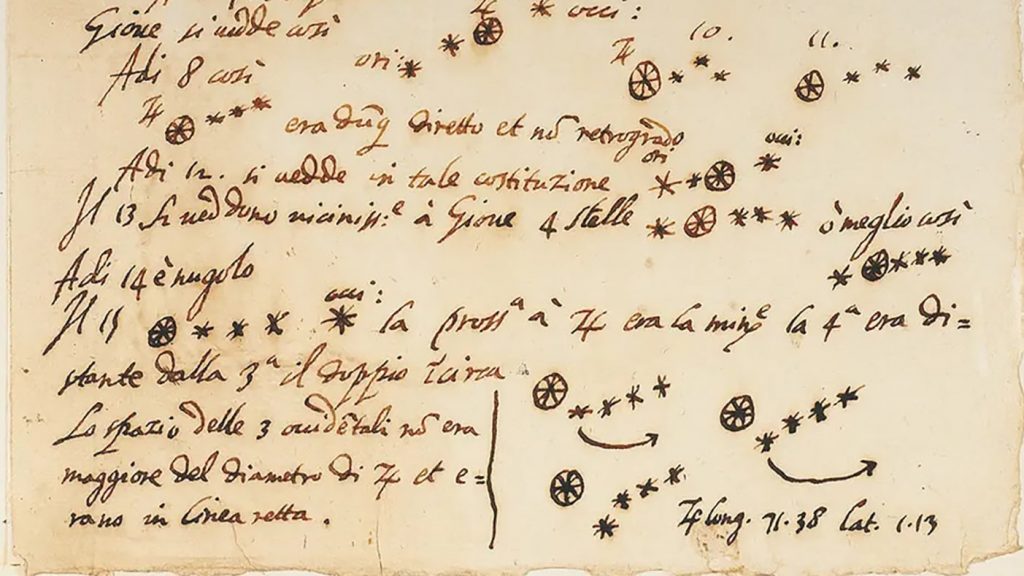 ♃ occi:
Gioue si uedde così
ori:
Adi 8 così
♃ 10. 11.
♃
era dūq diretto et nō retrogrado
Adi 12. si uedde in tale costituzione ori occi:
Il 13 si ueddono uiciniss:ᵉ à Gioue 4 stelle ò meglio così
Adi 14 è nugolo
Il 15 occi: la prossᵃ à ♃ era la minᵉ la 4ᵃ era di=
stante dalla 3ᵃ il doppio ī circa
Lo spazio delle 3 occidētali nō era
maggiore del diametro di ♃ et e=
rano in linea retta.
♃ long. 71.38 lat. 1.13